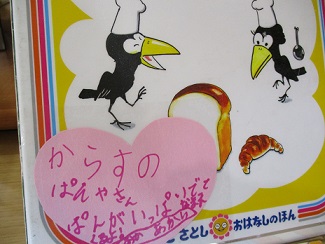 からすの
ぱんやさん
ぱんがいっぱいでて
さとし
おはなしのほん